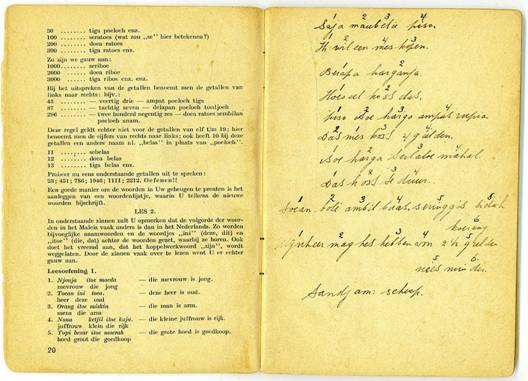 30 ........ tiga poeloeh enz.
100 ........ seratoes (wat zou „se" hier betekenen?)
200 ........ doea ratoes
300 ........ tiga ratoes enz.
Zo zijn we gauw aan:
1000 ........ seriboe
2000 ........ doea riboe
3000 ........ tiga riboe enz. enz.
Bij het uitspreken van de getallen benoemt men de getallen van
links naar rechts: bijv.:
43 — veertig drie — ampat poeloeh tiga
87 — tachtig zeven — delapan poeloeh toedjoeh
296 — twee honderd negentig zes — doea ratoes sembilan
poeloeh anam.
Deze regel geldt echter niet voor de getallen van elf t/m 19; hier
benoemt men de cijfers van rechts naar links; ook heeft 10 bij deze
getallen een andere naam nl. „belas" in plaats van „poeloeh".
11 ........ sebelas
12 ........ doea belas
13 ........ tiga belas enz.
Probeer nu eens onderstaande getallen uit te spreken:
23; 451; 786; 1946; 1111; 2212. Oefenen!!
Een goede manier om de woorden in Uw geheugen te prenten is het
aanleggen van een woordenlijstje, waarin U telkens de nieuwe
woorden bijschrijft.
LES 2.
In onderstaande zinnen zult U opmerken dat de volgorde der woor-
den in het Maleis vaak anders is dan in het Nederlands. Zo worden
bijvoeglijke naamwoorden en de woordjes „ini" (deze, dit) en
„itoe" (die, dat) achter de woorden gezet, waarbij ze horen. Ook
doet het vreemd aan, dat het koppelwerkwoord „zijn", wordt
weggelaten. Door de zinnen vaak over te lezen went U er echter
gauw aan.
Leesoefening 1.
1. Njonja itoe moeda — die mevrouw is jong.
mevrouw die jong
2. Toean ini toea. — deze heer is oud.
heer deze oud
3. Orang itoe miskin — die man is arm.
mens die arm
4. Nona ketjil itoe kaja. — die kleine juffrouw is rijk.
juffrouw klein die rijk
5. Topi besar itoe moerah — die grote hoed is goedkoop.
hoed groot die goedkoop
20
Saja maubeli piso.
Ik wil een mes kopen.
Berapa harganja.
Hoeveel kost das.
piso itoe harga ampat rupia.
Das mes kost 4 gulden.
itoe harga mahal.
Das kost duur.
Toean boli ambil
mag het hebben om 2½ gulden
Sandjam: scherp.